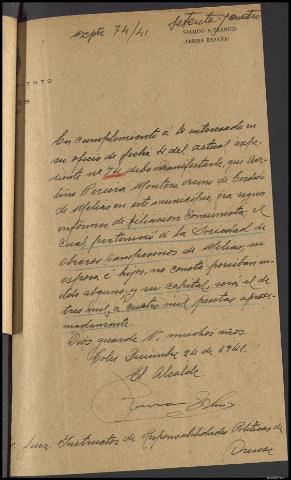 expte 74/41
Setenta y cuatro
SALUDO A FRANCO:
¡ARRIBA ESPAÑA!
En cumplimiento a lo interesado en
su oficio de fecha 4 del actual expe-
diente nº 74, debo manifestarle, que Ave-
lino Pereira Montero, vecino de
de Melias en este municipio, era segun
informes de filiacion comunista; el
cual perteneció a la Sociedad de
obreros Campesinos de Melias, su
esposa é hijos, no consta perciban suel-
do alguno, y su capital, será el de
tres mil, a cuatro mil pesetas aproxi-
madamente.
Dios guarde V. muchos años.
Coles Diciembre 24 de 1941.
El Alcalde
Sr. Juez Instructor de Responsabilidades Politicas de
Orense